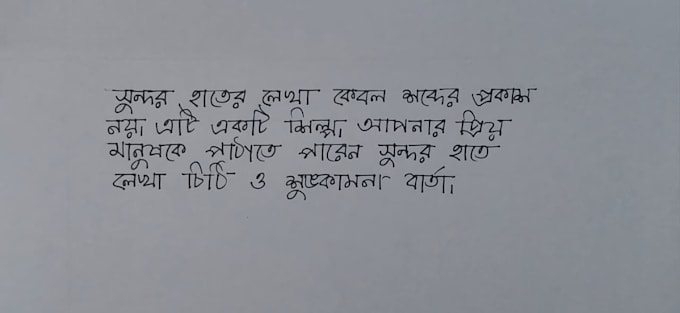 সুন্দর হাতের লেখা কেবল শব্দের প্রকাশ
নয়। এটি একটি শিল্প। আপনার প্রিয়
মানুষকে পাঠাতে পারেন সুন্দর হাতে
লেখা চিঠি ও শুভকামনা বার্তা।